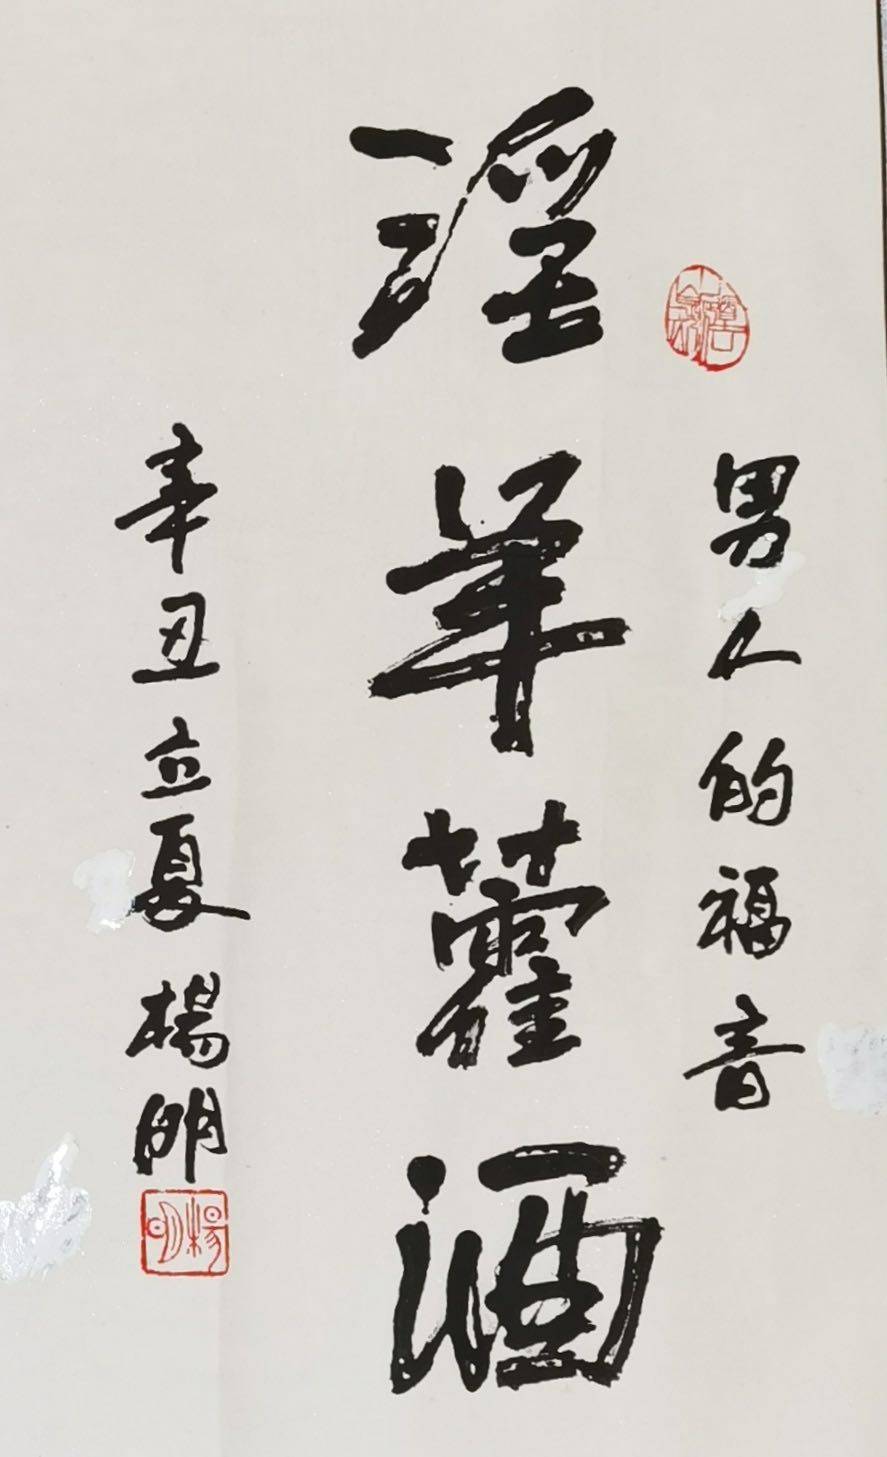 男人的福音
淫羊藿酒
辛丑立夏 楊明
楊明